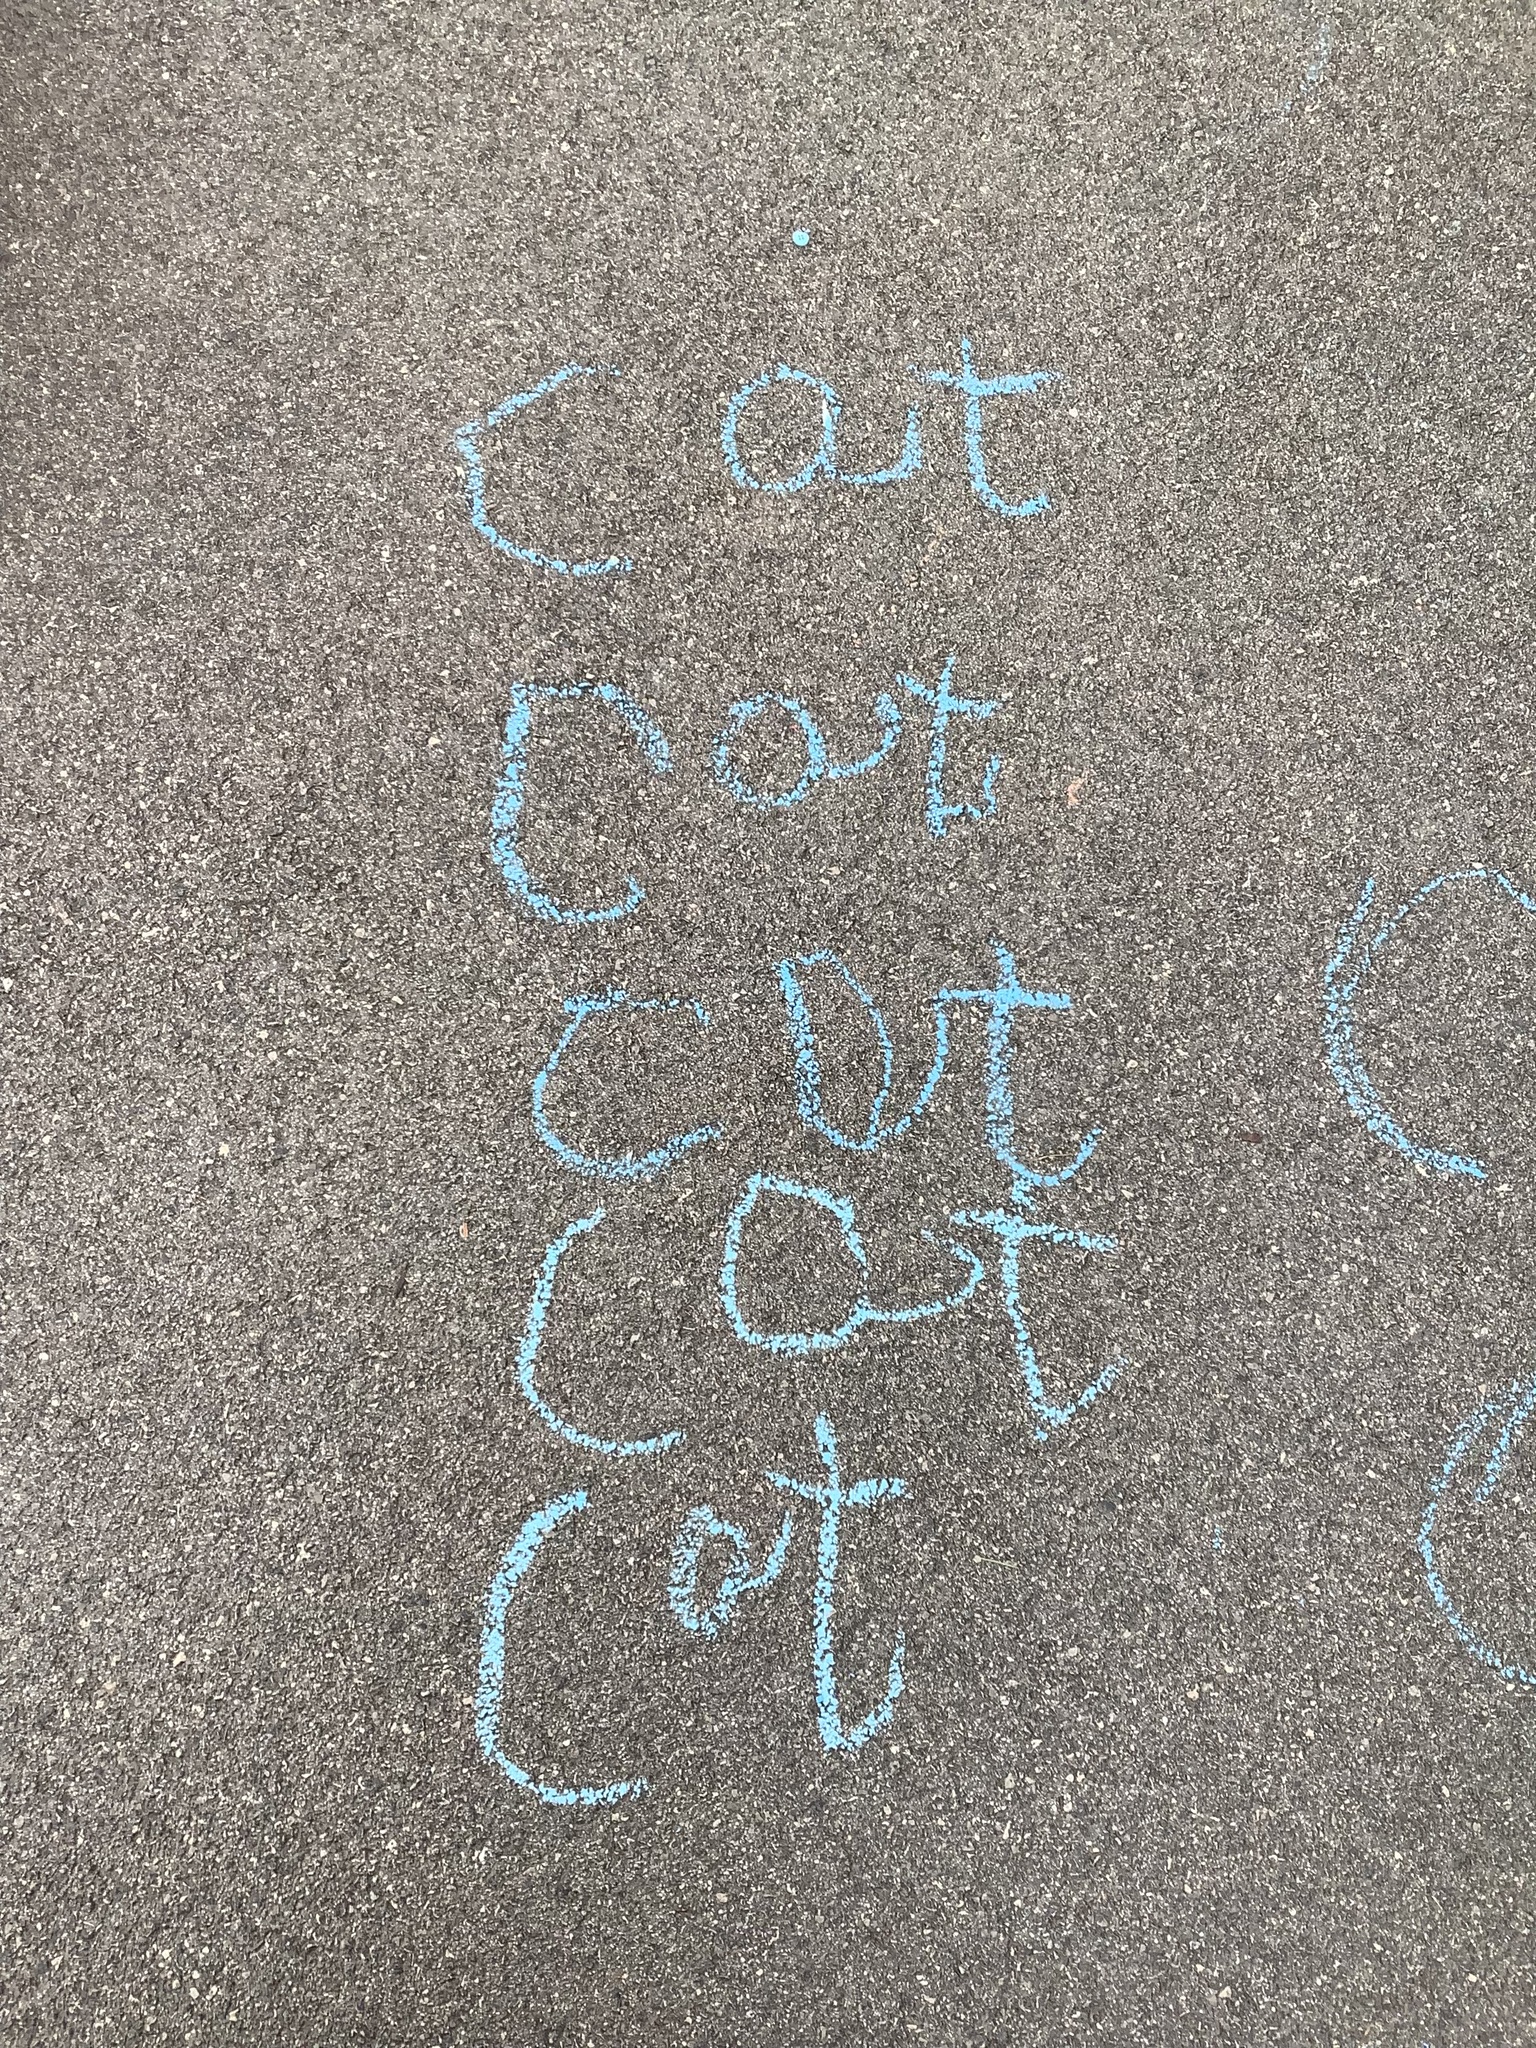 Cat
Cat
Cat
Cat
Cat